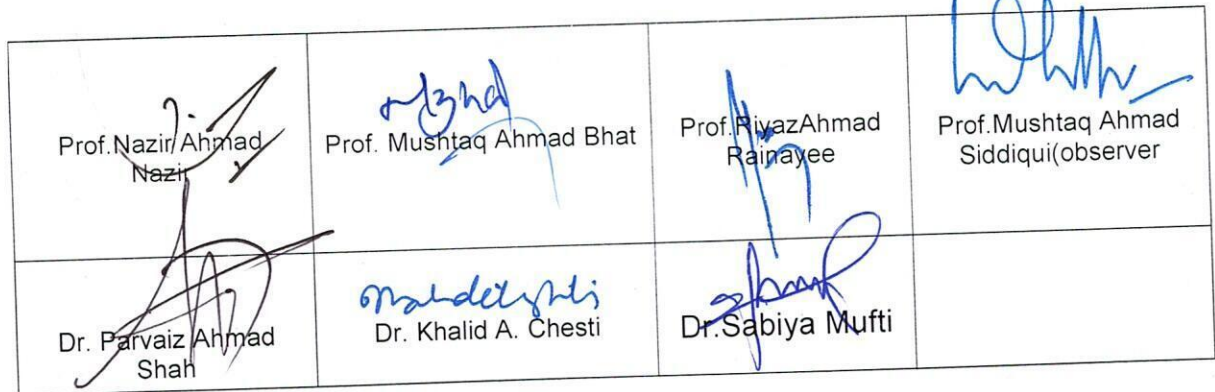 Prof.Nazir Ahmad
Nazir
Prof. Mushtaq Ahmad Bhat
Prof.RiyazAhmad
Rainayee
Prof.Mushtaq Ahmad
Siddiqui(observer
Dr. Parvaiz Ahmad
Shah
Dr. Khalid A. Chesti
Dr.Sabiya Mufti